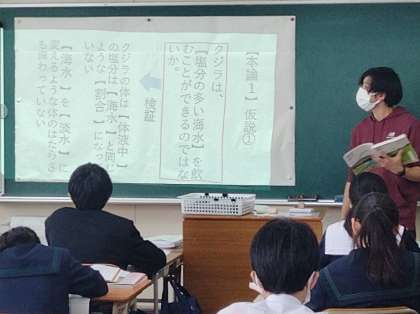 【本論1】仮説①
クジラは、
【塩分の多い海水】を飲
むことができるのではな
いか。
検証
クジラの体は【体液中】
の塩分は【海水】と同じ
ような【割合】になって
いない
【海水】を【淡水】に
変えるような体のはたらき
も備わっていない